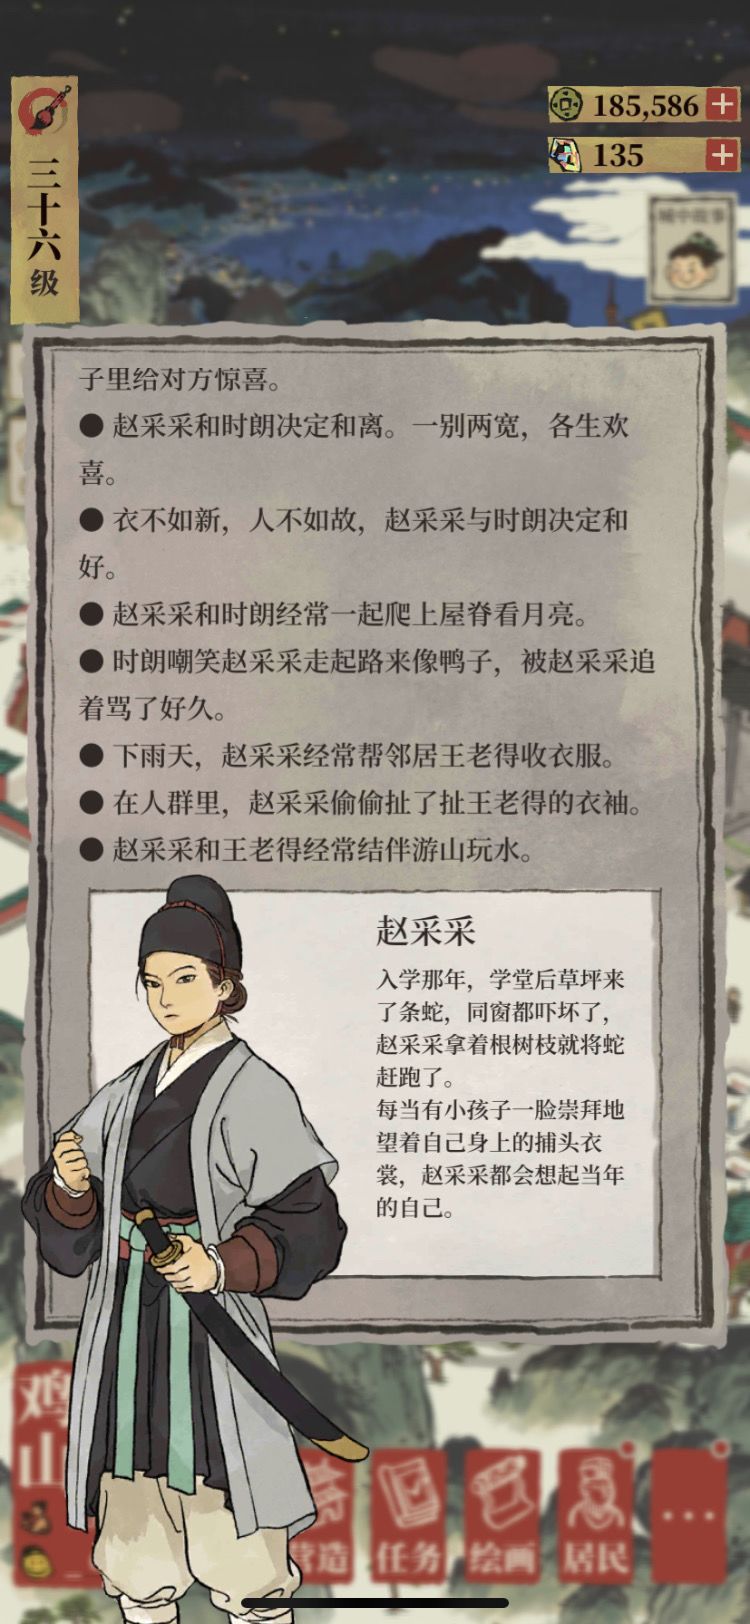 三十六级
185,586
135
城中故事
子里给对方惊喜。
● 赵采采和时朗决定和离。一别两宽，各生欢
喜。
● 衣不如新，人不如故，赵采采与时朗决定和
好。
● 赵采采和时朗经常一起爬上屋脊看月亮。
● 时朗嘲笑赵采采走起路来像鸭子，被赵采采追
着骂了好久。
● 下雨天，赵采采经常帮邻居王老得收衣服。
● 在人群里，赵采采偷偷扯了扯王老得的衣袖。
● 赵采采和王老得经常结伴游山玩水。
赵采采
入学那年，学堂后草坪来
了条蛇，同窗都吓坏了，
赵采采拿着根树枝就将蛇
赶跑了。
每当有小孩子一脸崇拜地
望着自己身上的捕头衣
裳，赵采采都会想起当年
的自己。
鸡
山
营造
任务
绘画
居民